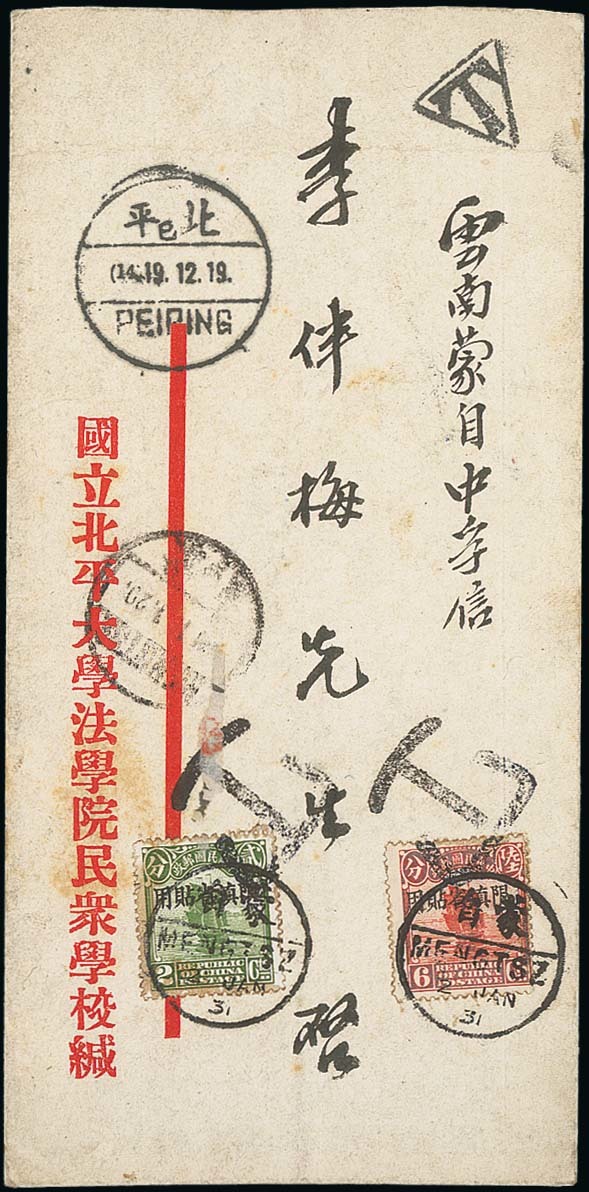 雲南蒙自中字信
李伴梅先生啓
國立北平大學法學院民衆學校緘
平 北
19.12.19.
PEIPING
T
分 陸
限滇省貼用
蒙自
MENGTSZ
JAN
31
6 REPUBLIC OF CHINA POSTAGE
分 貳
限滇省貼用
蒙
MENGTSZ
JAN
31
2 REPUBLIC OF CHINA